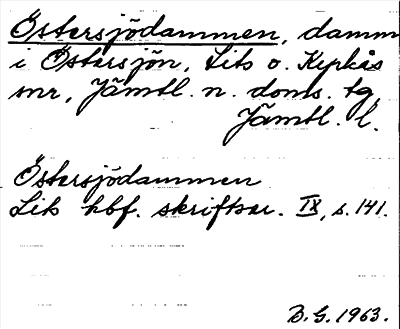 Östersjödammen, damm
i Östersjön, Lits o. Kyrkås
snr, Jämtl. n. doms. tg
Jämtl. l.
Östersjödammen
Lits hbf. skriftser. IX, s. 141.
B.G. 1963.